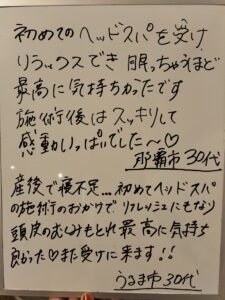 初めてのヘッドスパを受け
リラックスでき 眠っちゃうほど
最高に気持ちかったです
施術後はスッキリして
感動いっぱいでした〜♡
那覇市 30代
産後で寝不足...初めてヘッドスパ
の施術のおかげでリフレッシュにもなり
頭皮のむくみもとれ最高に気持ち
良かった♡また受けに来ます!!
うるま市 30代